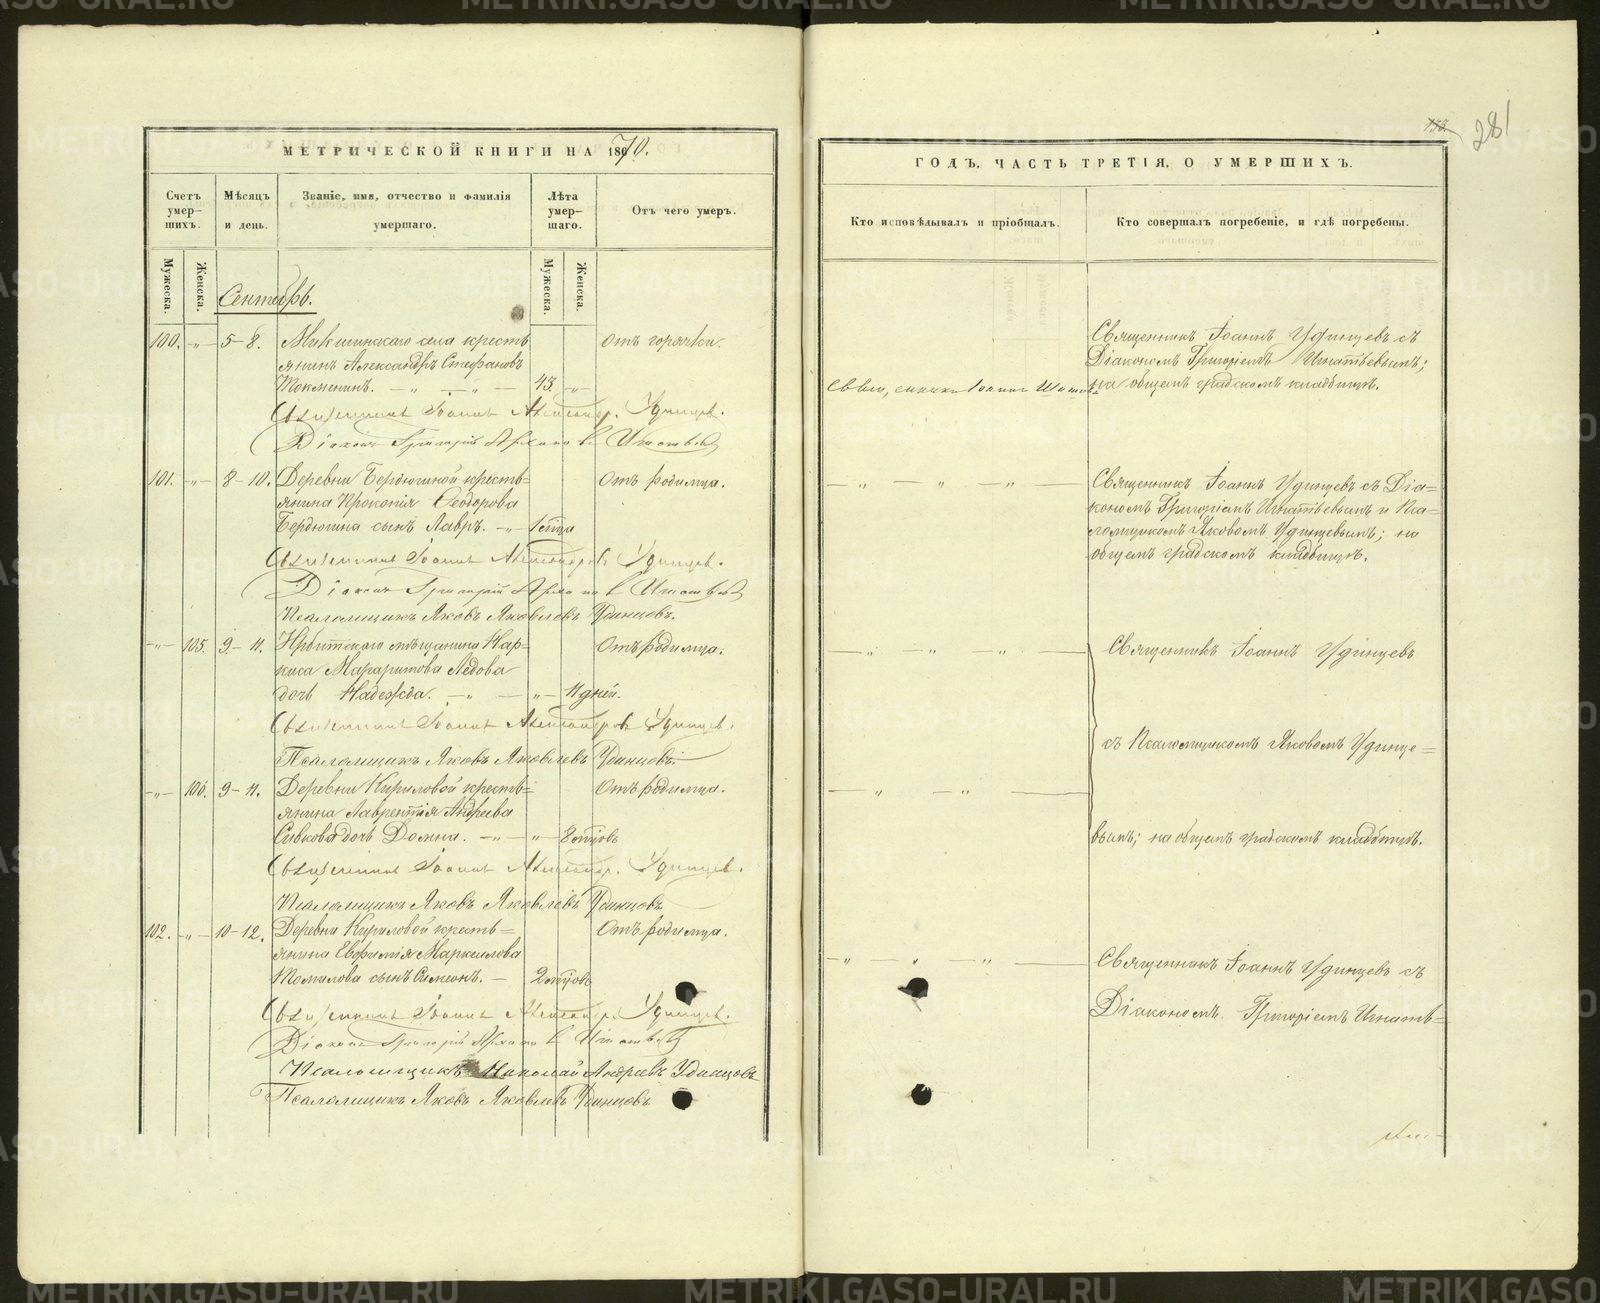 МЕТРИЧЕСКОЙ КНИГИ НА 1870.
Счетъ умер- шихъ.
Мѣсяцъ и день.
Званіе, имя, отчество и фамилія умершаго.
Лѣта умер- шаго.
Отъ чего умеръ.
Мужеска.
Женска.
Мужеска.
Женска.
Сентябрь.
100. -„- 5-8. Микшинскаго села кресть Отъ горячки.
янинъ Александръ Стефановъ
Токменинъ. — „ — „ — 43. -„-
Священникъ Іоаннъ Александр. Удинцев.
Діаконъ Григорій Игнатьев
101. -„- 8-10. Деревни Бердюгиной кресть= Отъ родимца.
янина Прокопія Ѳеодорова
Бердюгина сынъ Лавръ. -„-
Священникъ Іоаннъ Александров Удинцев.
Діаконъ Григорій Игнатьев
Псаломщикъ Яковъ Яковлевъ Удинцовъ.
-„- 105. 9-11. Ирбитскаго мѣщанина Нар- Отъ родимца.
киса Ледова
дочь Надежда. — „ — -„- 11 дней.
Священникъ Іоаннъ Александров Удинцев.
Псаломщикъ Яковъ Яковлевъ Удинцовъ.
-„- 106. 9-11. Деревни Кириловой кресть= Отъ родимца.
янина Лаврентія Андреева
Сивкова дочь Домна. -„- -„-
Священникъ Іоаннъ Александр. Удинцев.
Псаломщикъ Яковъ Яковлевъ Удинцовъ
102. -„- 10-12. Деревни Кириловой кресть= Отъ родимца.
янина Евфимія Маркелова
Томилова сынъ Симеонъ. —
Священникъ Іоаннъ Александр. Удинцев.
Діаконъ Григорій Игнатьев
Псаломщикъ Николай Андреевъ Удинцовъ
Псаломщикъ Яковъ Яковлевъ Удинцовъ
281
ГОДЪ, ЧАСТЬ ТРЕТІЯ, О УМЕРШИХЪ.
Кто исповѣдывалъ и пріобщалъ.
Кто совершалъ погребеніе, и гдѣ погребены.
Священникъ Іоаннъ Удинцевъ съ
Діакономъ Григоріемъ Игнатьевымъ;
на общемъ градскомъ кладбищѣ.
Священникъ Іоаннъ Удинцевъ съ Діа=
кономъ Григоріемъ Игнатьевымъ и Пса=
ломщикомъ Яковомъ Удинцевымъ; на
общемъ градскомъ кладбищѣ.
Священникъ Іоаннъ Удинцевъ
съ Псаломщикомъ Яковомъ Удинце=
вымъ; на общемъ градскомъ кладбищѣ.
Священникъ Іоаннъ Удинцевъ съ
Діакономъ Григоріемъ Игнать=
METRIKI.GASO-URAL.RU